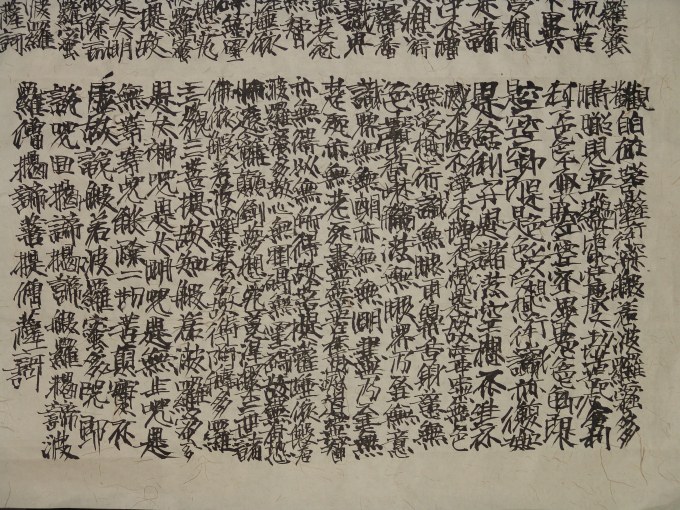 羅蜜
切苦
不異
是諸
観自在菩薩行深般若波羅蜜多
時照見五蘊皆空度一切苦厄舎利
子色不異空空不異色色即是
空空即是色受想行識亦復如
是舎利子是諸法空相不生不
滅不垢不浄不増不減是故空中無色
無受想行識無眼耳鼻舌身意無
色聲香味觸法無眼界乃至無意
識界無無明亦無無明盡乃至無
老死亦無老死盡無苦集滅道無智
亦無得以無所得故菩提薩埵依般若
波羅蜜多故心無罣礙無罣礙故無有恐
怖遠離顛倒夢想究竟涅槃三世諸
佛依般若波羅蜜多故得阿耨多羅
三藐三菩提故知般若波羅蜜多
是大神呪是大明呪是無上呪是
無等等呪能除一切苦真實不
虚故説般若波羅蜜多呪即
説呪曰掲諦掲諦般羅掲諦波
羅僧掲諦菩提僧薩訶